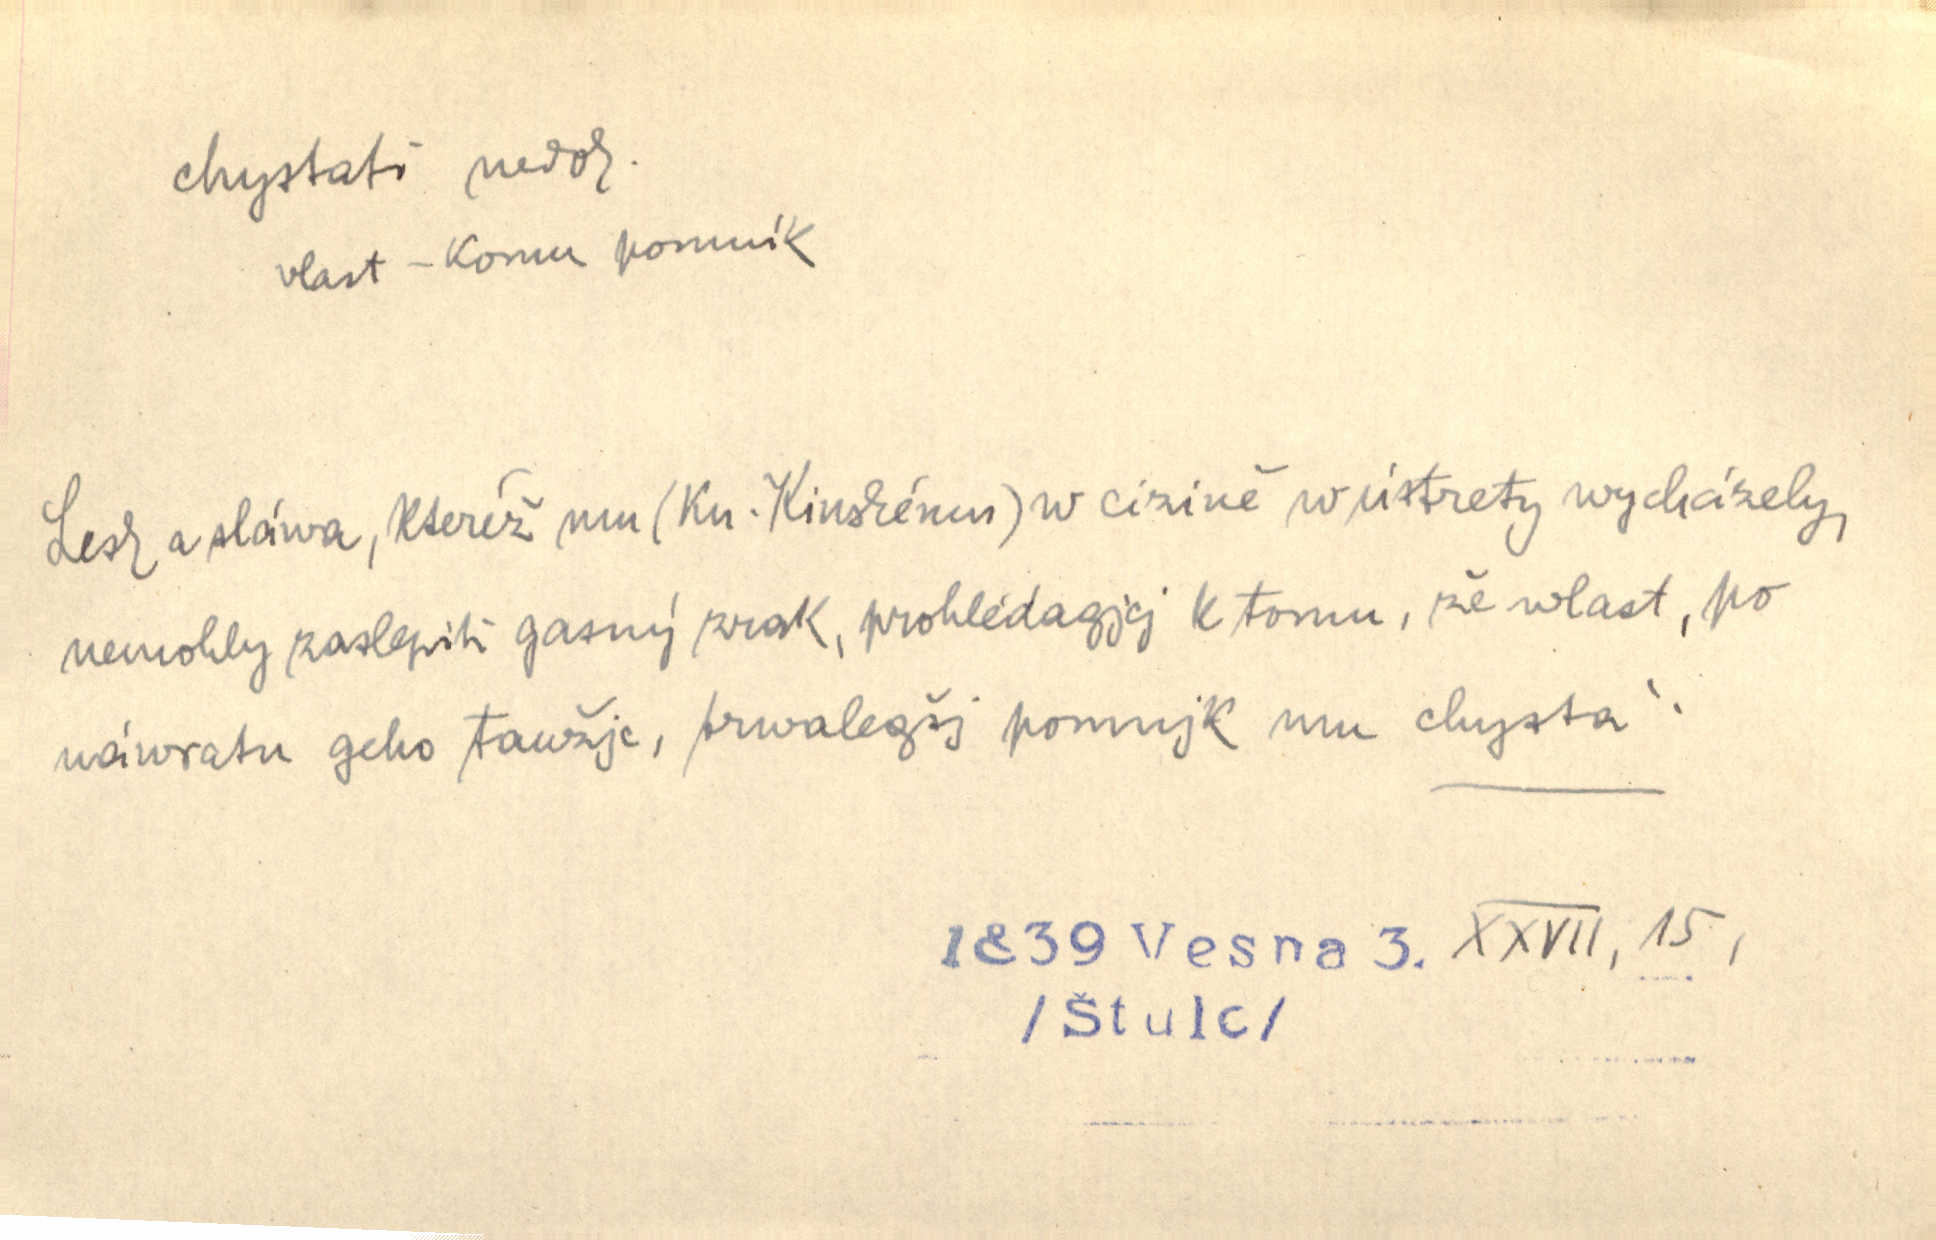 chystati nedok.
vlast – komu pomník
Lesk a sláwa, kteréž mu (Kn. Kinskému) w cizině w ústrety wycházely,
nemohly zaslepiti gasný zrak, prohlédagjcj k tomu, že wlast, po
náwratu geho taužjc, trwalegšj pomnjk mu chystá.
1839 Vesna 3. XXVII, 15,
/Štulc/